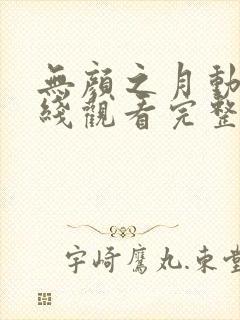 無顏之月動
綫觀看完整
宇崎鷹丸.束堂